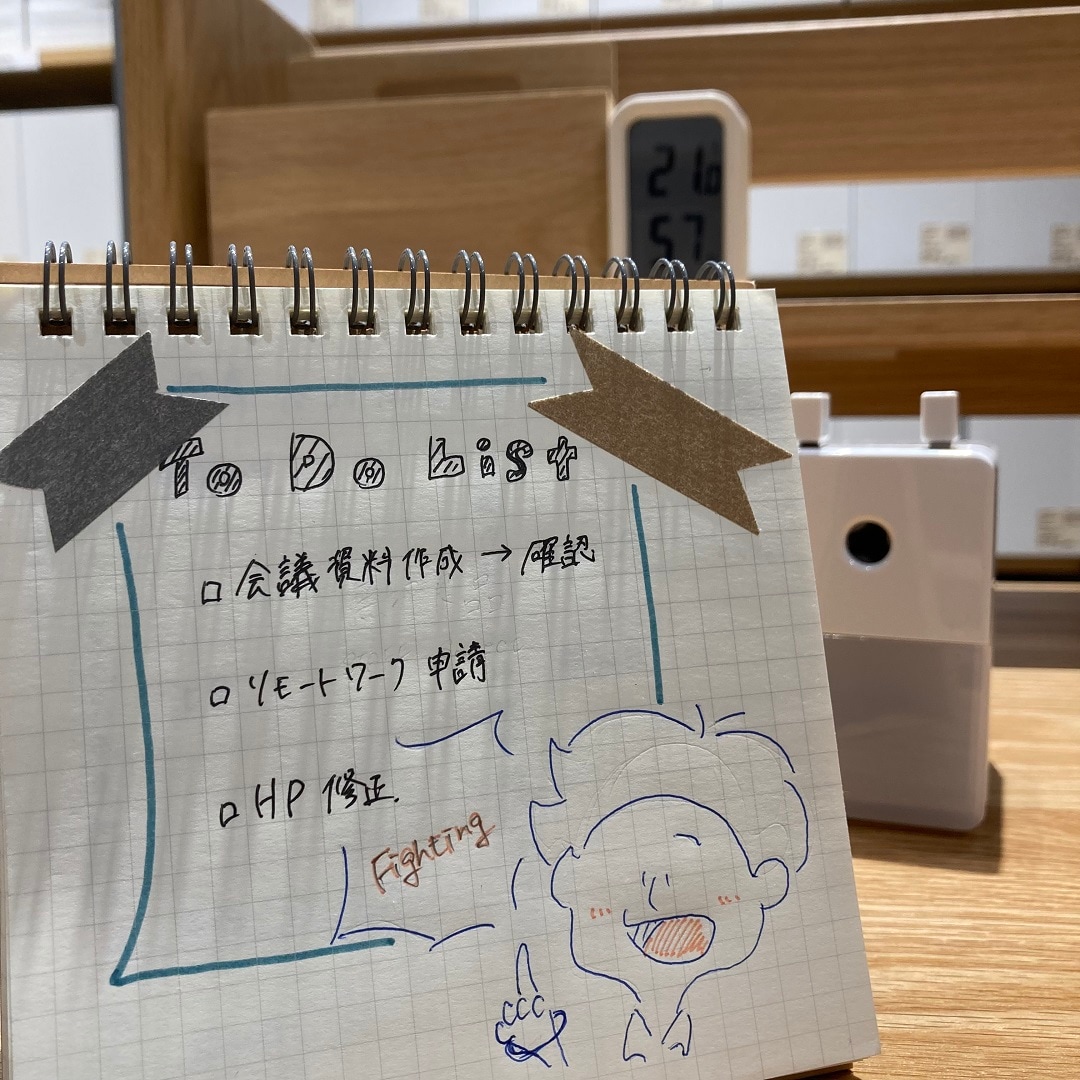 21.0
57
To Do List
□ 会議資料作成 → 確認
□ リモートワーク 申請
□ HP 修正.
Fighting